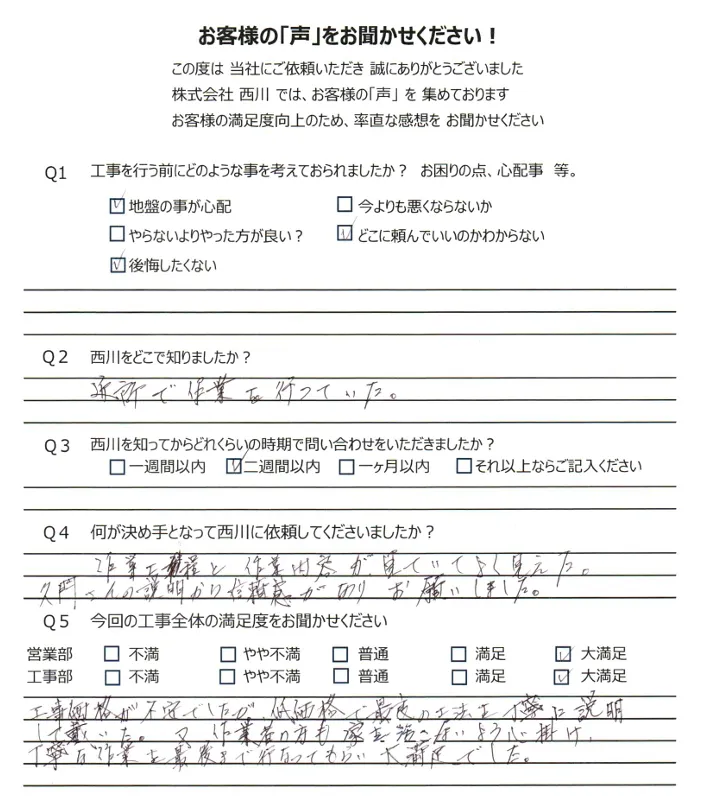 お客様の「声」をお聞かせください！
この度は 当社にご依頼いただき 誠にありがとうございました
株式会社 西川 では、お客様の「声」 を 集めております
お客様の満足度向上のため、率直な感想を お聞かせください
Q1 工事を行う前にどのような事を考えておられましたか？ お困りの点、心配事 等。
☑地盤の事が心配 □今よりも悪くならないか
□やらないよりやった方が良い？ ☑どこに頼んでいいのかわからない
☑後悔したくない
Q2 西川をどこで知りましたか？
近所で作業を行っていた。
Q3 西川を知ってからどれくらいの時期で問い合わせをいただきましたか？
□一週間以内 ☑二週間以内 □一ヶ月以内 □それ以上ならご記入ください
Q4 何が決め手となって西川に依頼してくださいましたか？
作業工程と作業内容が見ていてよく見えた。
久門さんの説明から信頼感がありお願いしました。
Q5 今回の工事全体の満足度をお聞かせください
営業部 □ 不満 □ やや不満 □ 普通 □ 満足 ☑ 大満足
工事部 □ 不満 □ やや不満 □ 普通 □ 満足 ☑ 大満足
工事価格が不安でしたが、低価格で最良の工法を丁寧に説明
して戴いた。又、作業者の方も家を汚さないよう心掛け、
丁寧な作業を最後まで行なってもらい大満足でした。